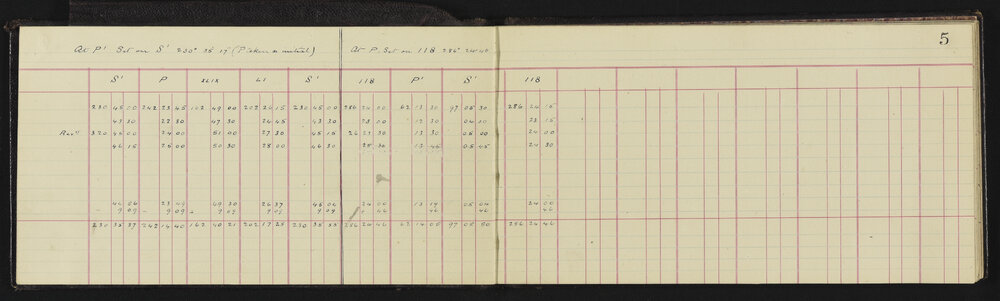 5
At P' Set on S' 230° 35 17 (P taken as initial) At P. Set on 118 286° 24 46
S' P XLIX LI S' 118 P' S' 118
230 45 00 242 23 45 102 49 00 202 26 15 230 45 00 286 24 00 62 13 30 97 05 30 286 24 15
43 30 22 30 47 30 24 45 43 30 23 00 12 30 04 10 23 15
320 46 00 24 00 51 00 27 30 45 15 26 23 30 13 30 05 00 24 00
46 15 25 00 50 30 28 00 46 30 25 30 13 45 05 45 24 30
23 49 49 30 26 37 24 00 13 19 05 04 24 00
- 9 09 - 9 09 9 09 9 09 9 09 + 46 46 46 46
230 35 37 242 14 40 162 40 21 202 17 25 230 35 55 286 24 46 62 14 05 97 05 50 286 24 46